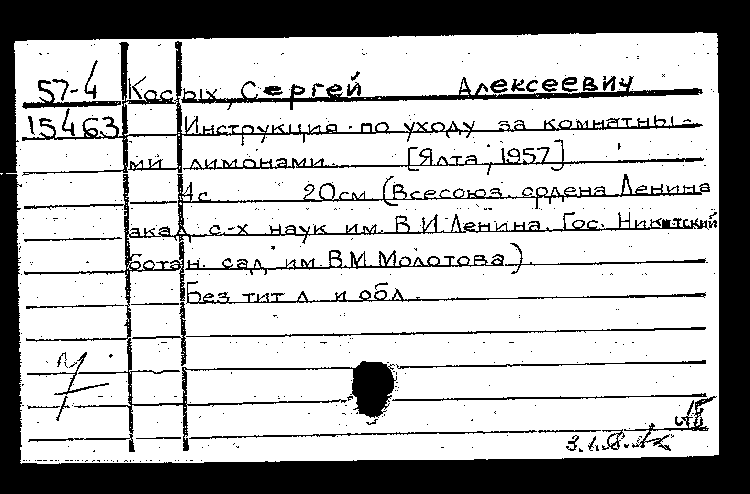 57-4 Косых, Сергей Алексеевич
15463 Инструкция по уходу за комнатны-
ми лимонами. [Ялта, 1957]
4с. 20см (Всесоюз. ордена Ленина
акад. с.-х наук им. В.И.Ленина. Гос. Никитский
ботан. сад им. В.М. Молотова).
Без тит л. и обл.